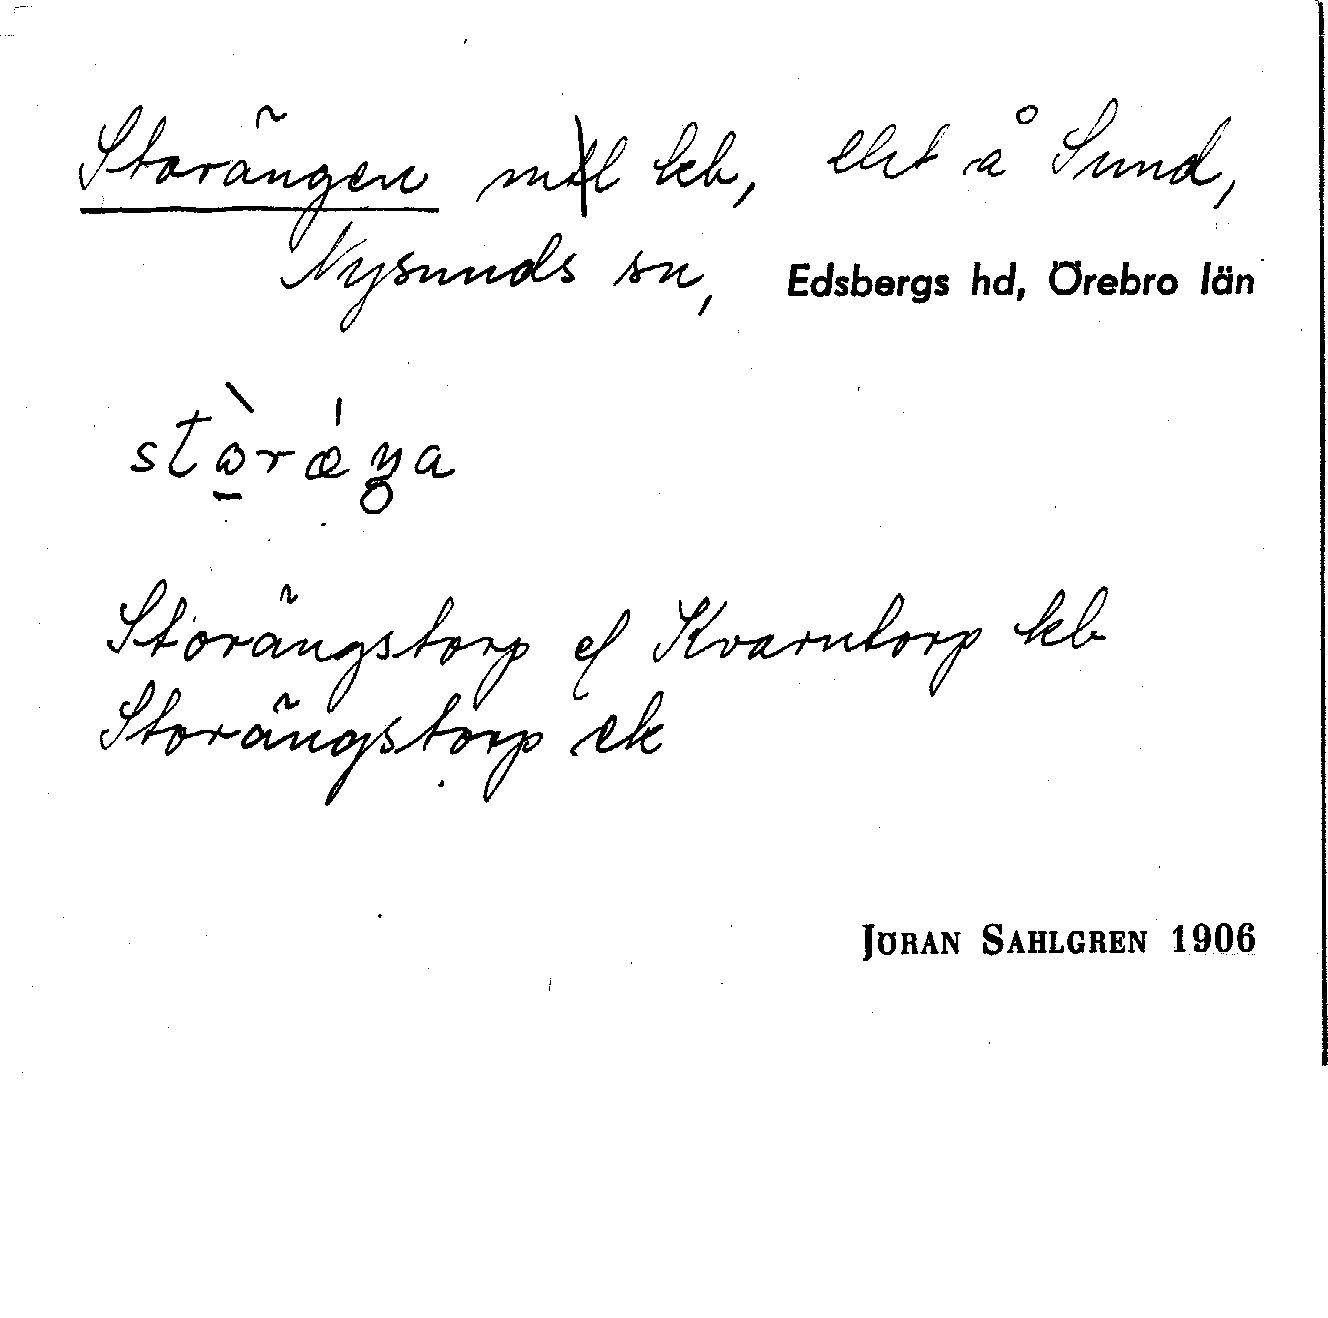 Storängen mtl kb, lht å Sund,
Nysunds sn, Edsbergs hd, Örebro län
Storängstorp ef Kvarntorp kb
Storängstorp ek
JÖRAN SAHLGREN 1906